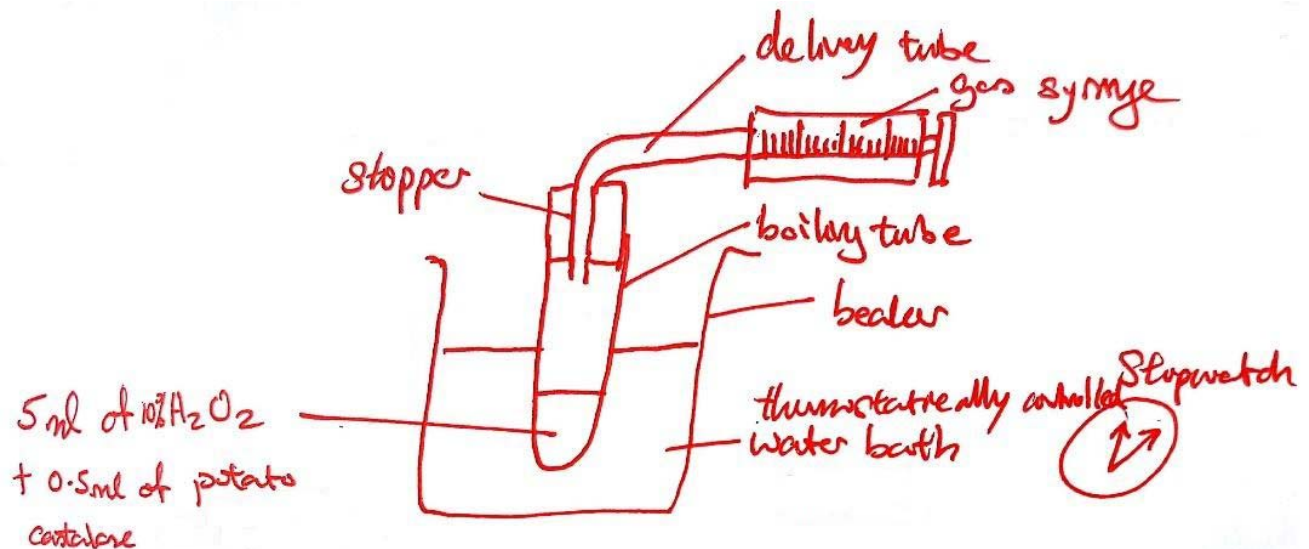 delivey tube
gas syringe
stopper
boiling tube
beaker
Stopwatch
thermostatically controlled
water bath
5ml of 10% H2O2
+ 0.5ml of potato
catalase